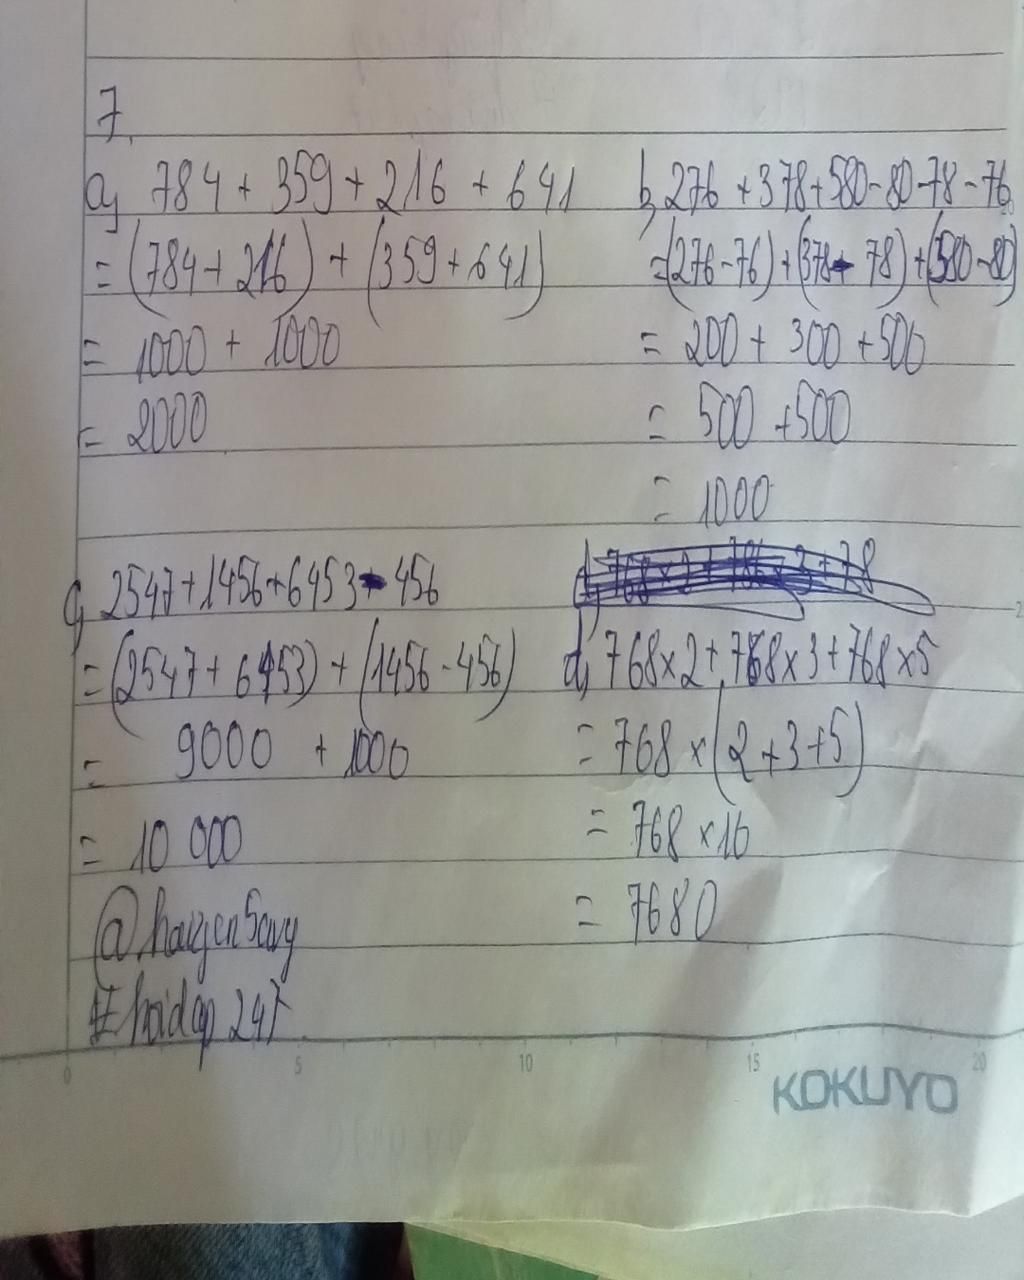 7.
a, 784 + 359 + 216 + 641
= (784 + 216) + (359 + 641)
= 1000 + 1000
= 2000
b, 276 + 378 + 580 - 80 - 78 - 76
= (276 - 76) + (378 - 78) + (580 - 80)
= 200 + 300 + 500
= 500 + 500
= 1000
c, 2547 + 1456 + 6453 - 456
= (2547 + 6453) + (1456 - 456)
= 9000 + 1000
= 10 000
d, 768 x 2 + 768 x 3 + 768 x 5
= 768 x (2 + 3 + 5)
= 768 x 10
= 7680
#hoidap 247
0 5 10 15 20
KOKUYO